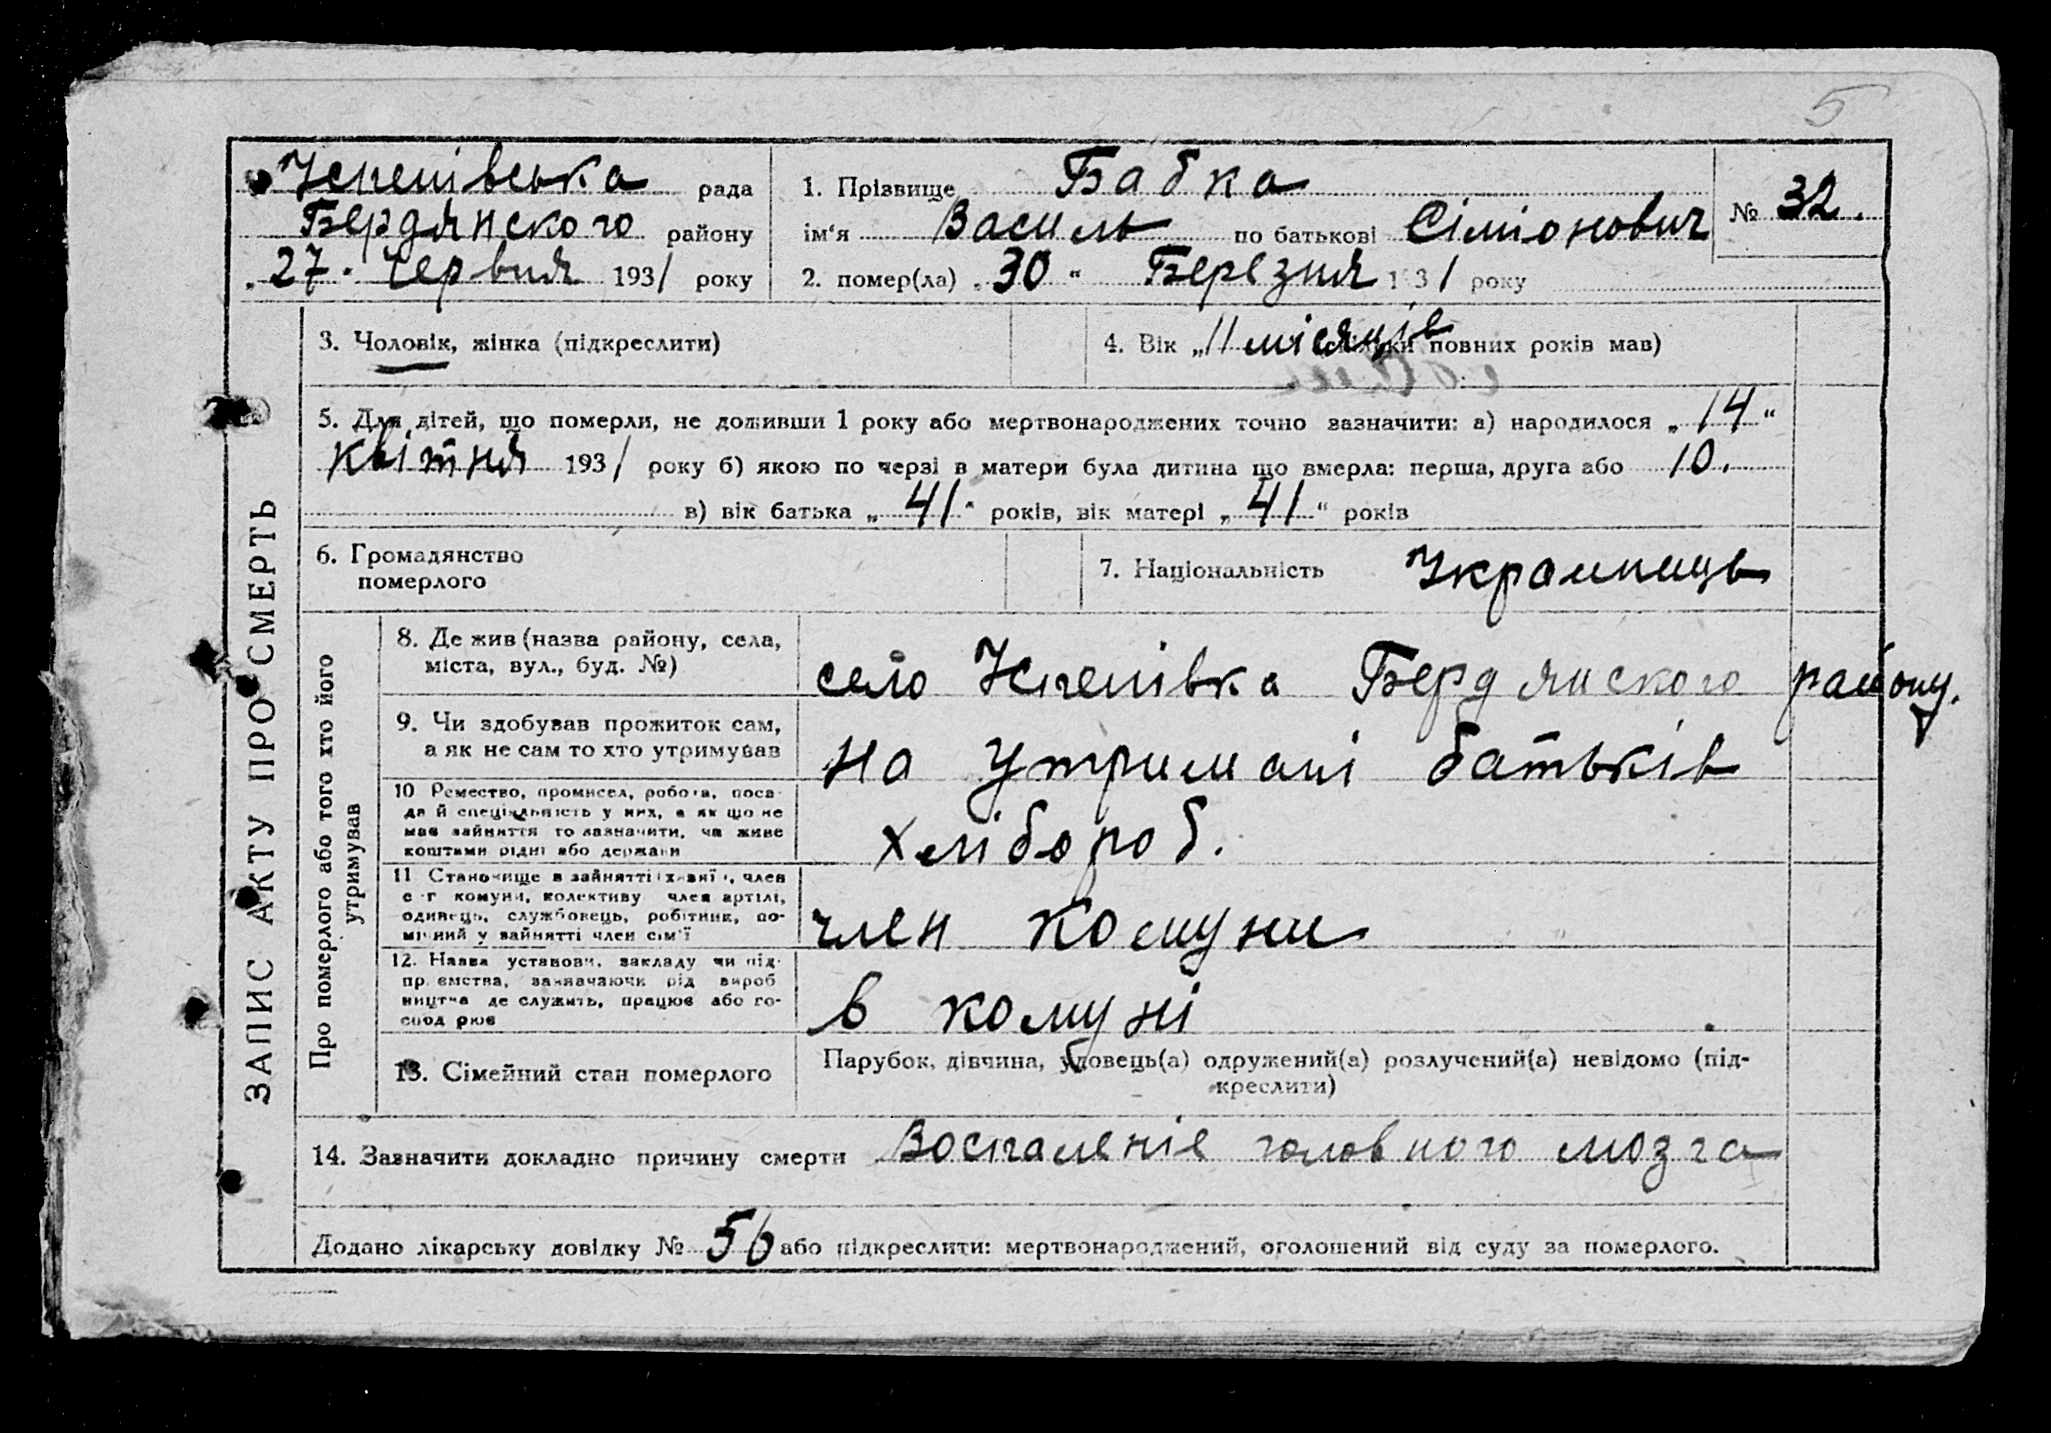 5
Успенівська рада
Бердянского району
„27" Червня 1931 року
1. Прізвище Бабка
ім'я Василь по батькові Сіміонович
2. помер(ла) „30" Березня 1931 року
№ 32.
3. Чоловік, жінка (підкреслити)
4. Вік „11 місяців повних років мав)
5. Для дітей, що померли, не доживши 1 року або мертвонароджених точно зазначити: а) народилося „14"
квітня 1931 року б) якою по черзі в матери була дитина що вмерла: перша, друга або 10.
в) вік батька „41" років, вік матері „41" років
6. Громадянство
померлого
7. Національність Украинець
ЗАПИС АКТУ ПРО СМЕРТЬ
Про померлого або того хто його
утримував
8. Де жив (назва району, села,
міста, вул., буд. №)
село Успенівка Бердянского району.
9. Чи здобував прожиток сам,
а як не сам то хто утримував
на утримані батьків
10 Ремество, промисел, робота, поса-
да й спеціяльність у них, а як що не
мав зайняття то зазначити, чи живе
коштами рідні або держави
хлібороб.
11 Становище в зайнятті член
с-г комуни, колективу член артілі,
одинець, службовець, робітник, по-
мічний у зайнятті член сім'ї
член комуни
12. Назва установи, закладу чи під-
приємства, зазначаючи рід вироб
ництва де служить, працює або го-
спод рює
в комуні
13. Сімейний стан померлого
Парубок, дівчина, удовець(а) одружений(а) розлучений(а) невідомо (під-
креслити)
14. Зазначити докладно причину смерти Воспаленіє головного мозга
Додано лікарську довідку № 56 або підкреслити: мертвонароджений, оголошений від суду за померлого.